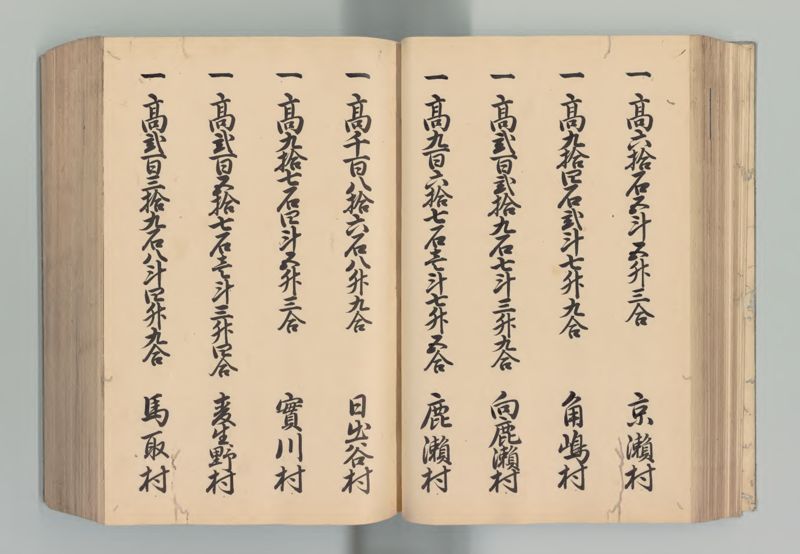 一 高六拾石五斗五升三合 京瀬村
一 高九拾四石弐斗七升九合 角嶋村
一 高弐百弐拾九石七斗三升九合 向鹿瀬村
一 高九百六拾七石壱斗七升五合 鹿瀬村
一 高千百八拾六石八升九合 日出谷村
一 高九拾七石四斗五升三合 實川村
一 高弐百五拾七石壱斗三升四合 麦生野村
一 高弐百三拾九石八斗四升九合 馬取村